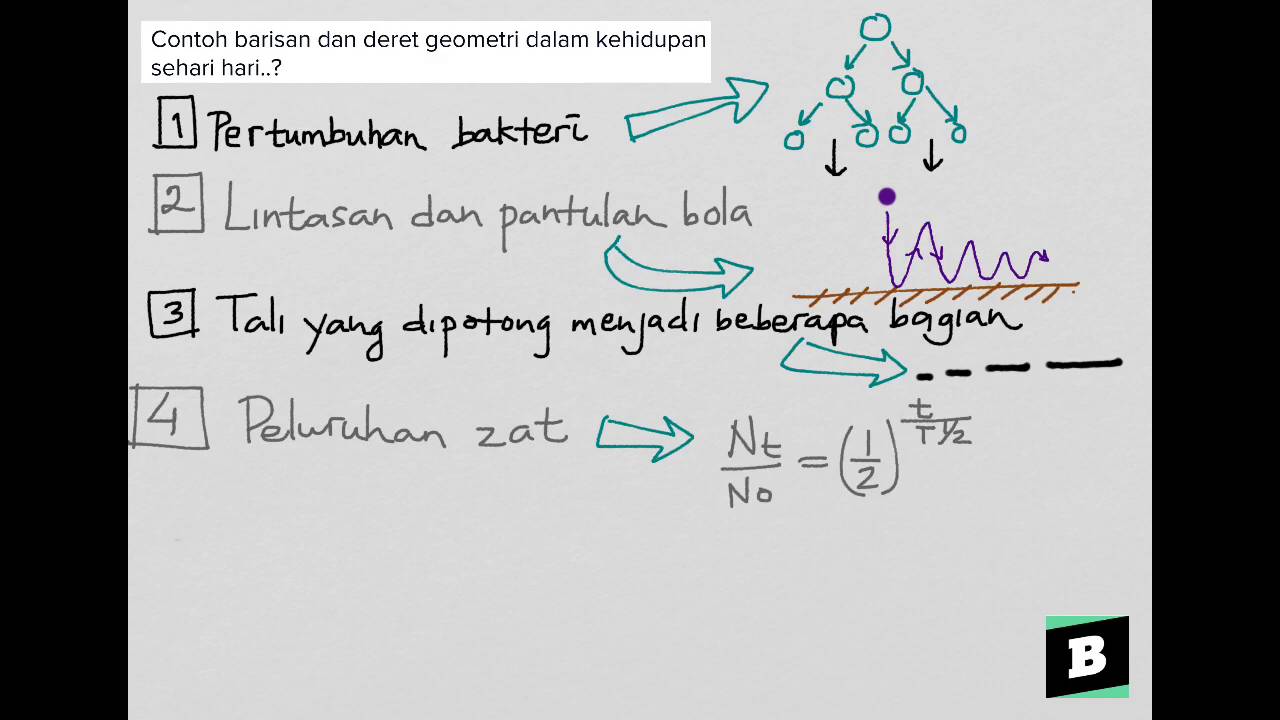 Contoh barisan dan deret geometri dalam kehidupan
sehari hari..?
1 Pertumbuhan bakteri
2 Lintasan dan pantulan bola
3 Tali yang dipotong menjadi beberapa bagian
4 Peluruhan zat
Nt/No = (1/2)^(t/T1/2)
B